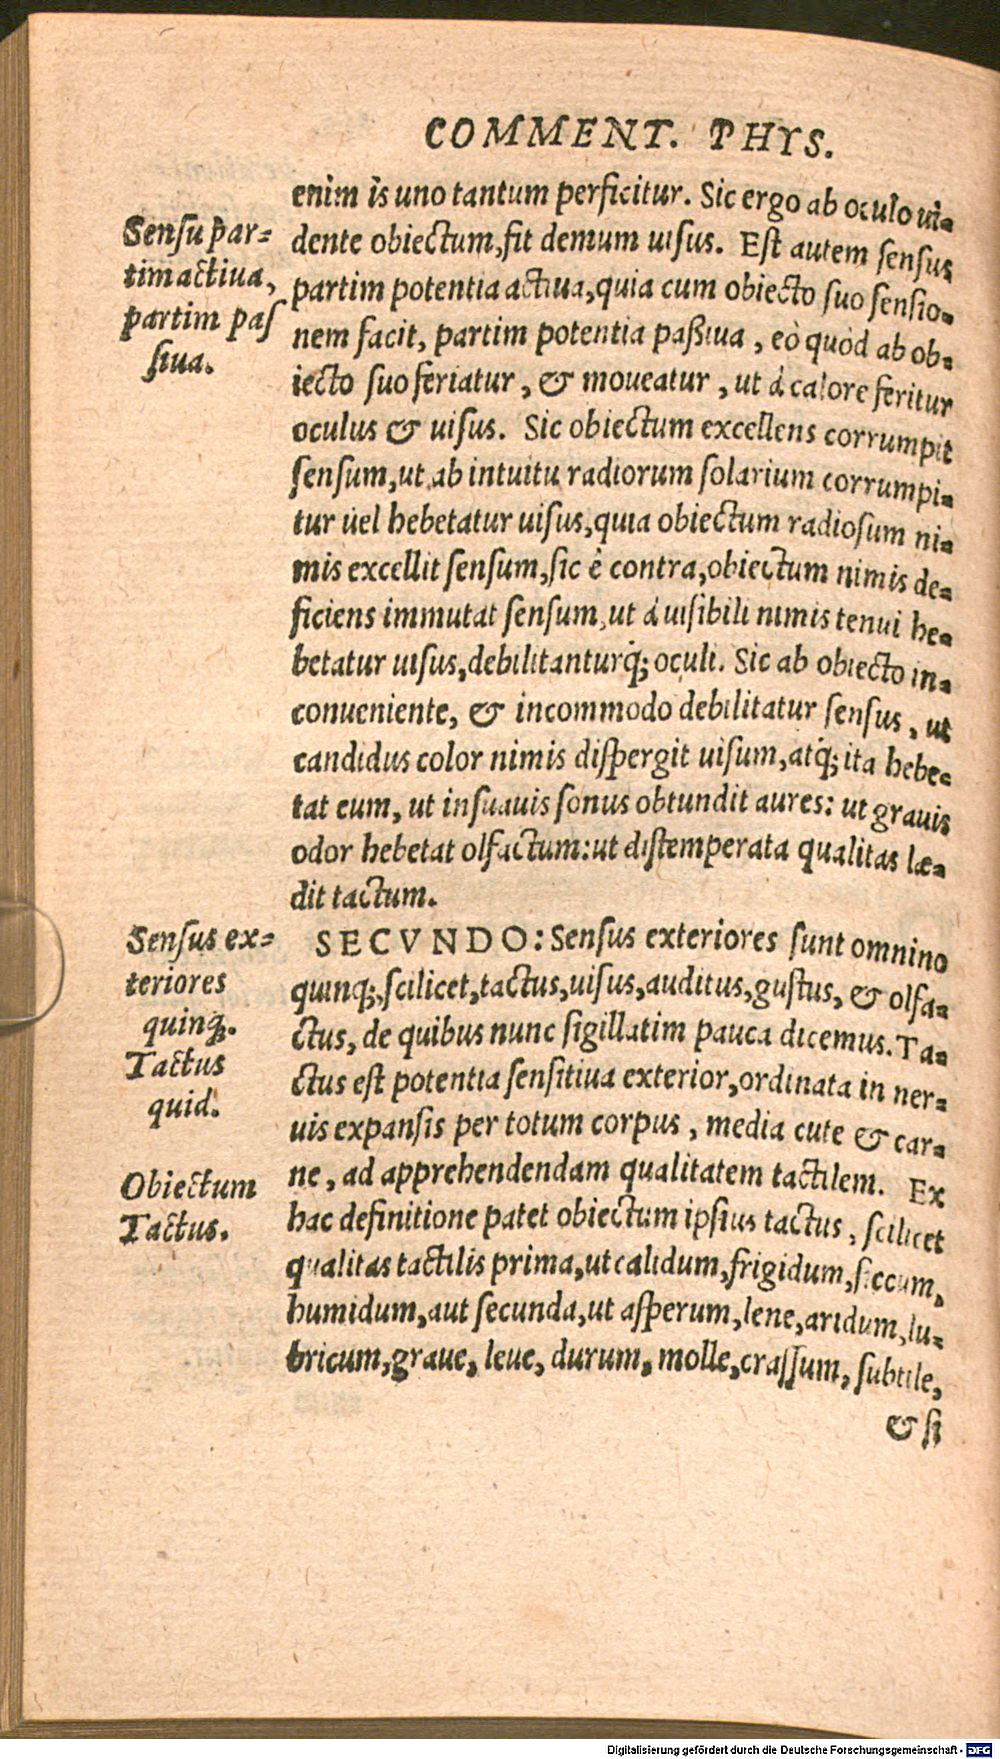 COMMENT. PHYS.
enim is uno tantum perficitur. Sic ergo ab oculo ui-
dente obiectum, fit demum uisus. Est autem sensus
partim potentia actiua, quia cum obiecto suo sensio-
nem facit, partim potentia paßiua, eò quòd ab ob-
iecto suo feriatur, & moueatur, ut à calore feritur
oculus & uisus. Sic obiectum excellens corrumpit
sensum, ut ab intuitu radiorum solarium corrumpi-
tur uel hebetatur uisus, quia obiectum radiosum ni-
mis excellit sensum, sic è contra, obiectum nimis de-
ficiens immutat sensum, ut à uisibili nimis tenui he-
betatur uisus, debilitanturq́; oculi. Sic ab obiecto in-
conueniente, & incommodo debilitatur sensus, ut
candidus color nimis dispergit uisum, atq́; ita hebe-
tat eum, ut insuauis sonus obtundit aures: ut grauis
odor hebetat olfactum: ut distemperata qualitas læ-
dit tactum.
SECVNDO: Sensus exteriores sunt omnino
quinq;, scilicet, tactus, uisus, auditus, gustus, & olfa-
ctus, de quibus nunc sigillatim pauca dicemus. Ta-
ctus est potentia sensitiua exterior, ordinata in ner-
uis expansis per totum corpus, media cute & car-
ne, ad apprehendendam qualitatem tactilem. Ex
hac definitione patet obiectum ipsius tactus, scilicet
qualitas tactilis prima, ut calidum, frigidum, siccum,
humidum, aut secunda, ut asperum, lene, aridum, lu-
bricum, graue, leue, durum, molle, crassum, subtile,
& si
Sensu par-
tim actiua,
partim pas
siua.
Sensus ex-
teriores
quinq;.
Tactus
quid.
Obiectum
Tactus.
Digitalisierung gefördert durch die Deutsche Forschungsgemeinschaft - DFG